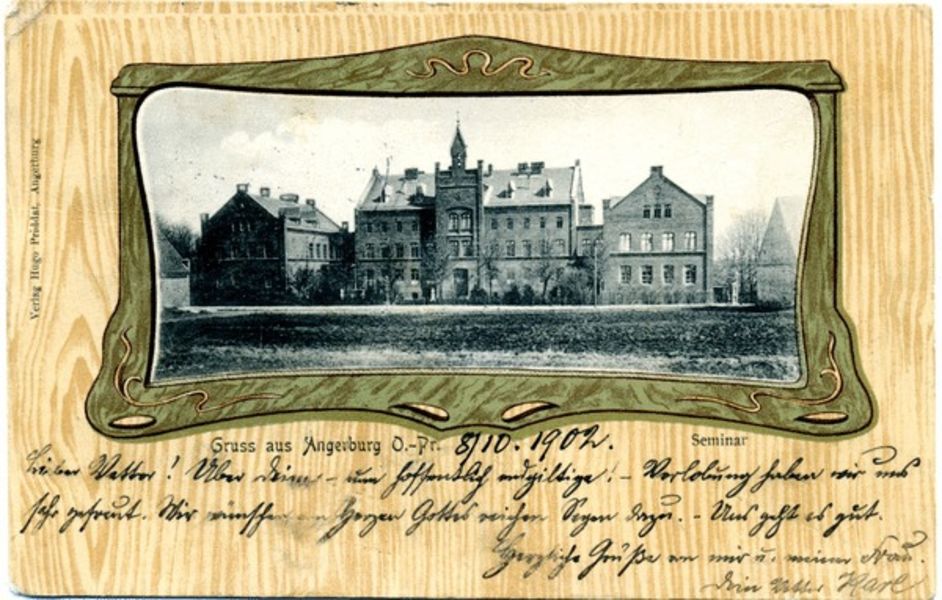 Verlag Hugo Priddat, Angerburg
Gruss aus Angerburg O.-Pr. 8/10. 1902.
Seminar
Lieber Vetter! Über Deine – nun hoffentlich endgiltige! – Verlobung haben wir uns
sehr gefreut. Wir wünschen von Herzen Gottes reichen Segen dazu. – Uns geht es gut.
Herzliche Grüße von mir u. meiner Frau.
Dein Vetter Karl